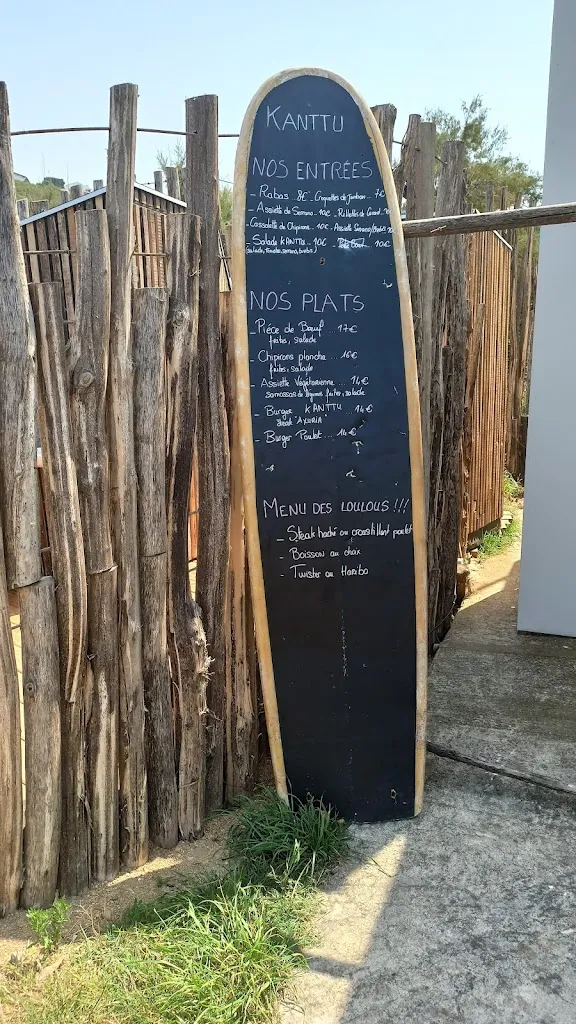 KANTTU
NOS ENTRÉES
- Rabas 8€ - Croquettes de Jambon 7€
- Assiette de Serrano . 10€ - Rillettes de Canard
- Cassolette de Chipirons . 10€ - Assiette Serrano/Brebis
- Salade KANTTU - 10€ - 10€
(salade, tomates, serrano, brebis)
NOS PLATS
- Pièce de Bœuf . 17€
frites, salade
- Chipirons plancha ... 16€
frites, salade
- Assiette Végétarienne ... 14€
samossas de légumes, frites, salade
- Burger KANTTU ... 14€
steak "AXURIA"
- Burger Poulet ... 14€
MENU DES LOULOUS !!!
- Steak haché ou croustillant poulet
- Boisson au choix
- Twister ou Haribo